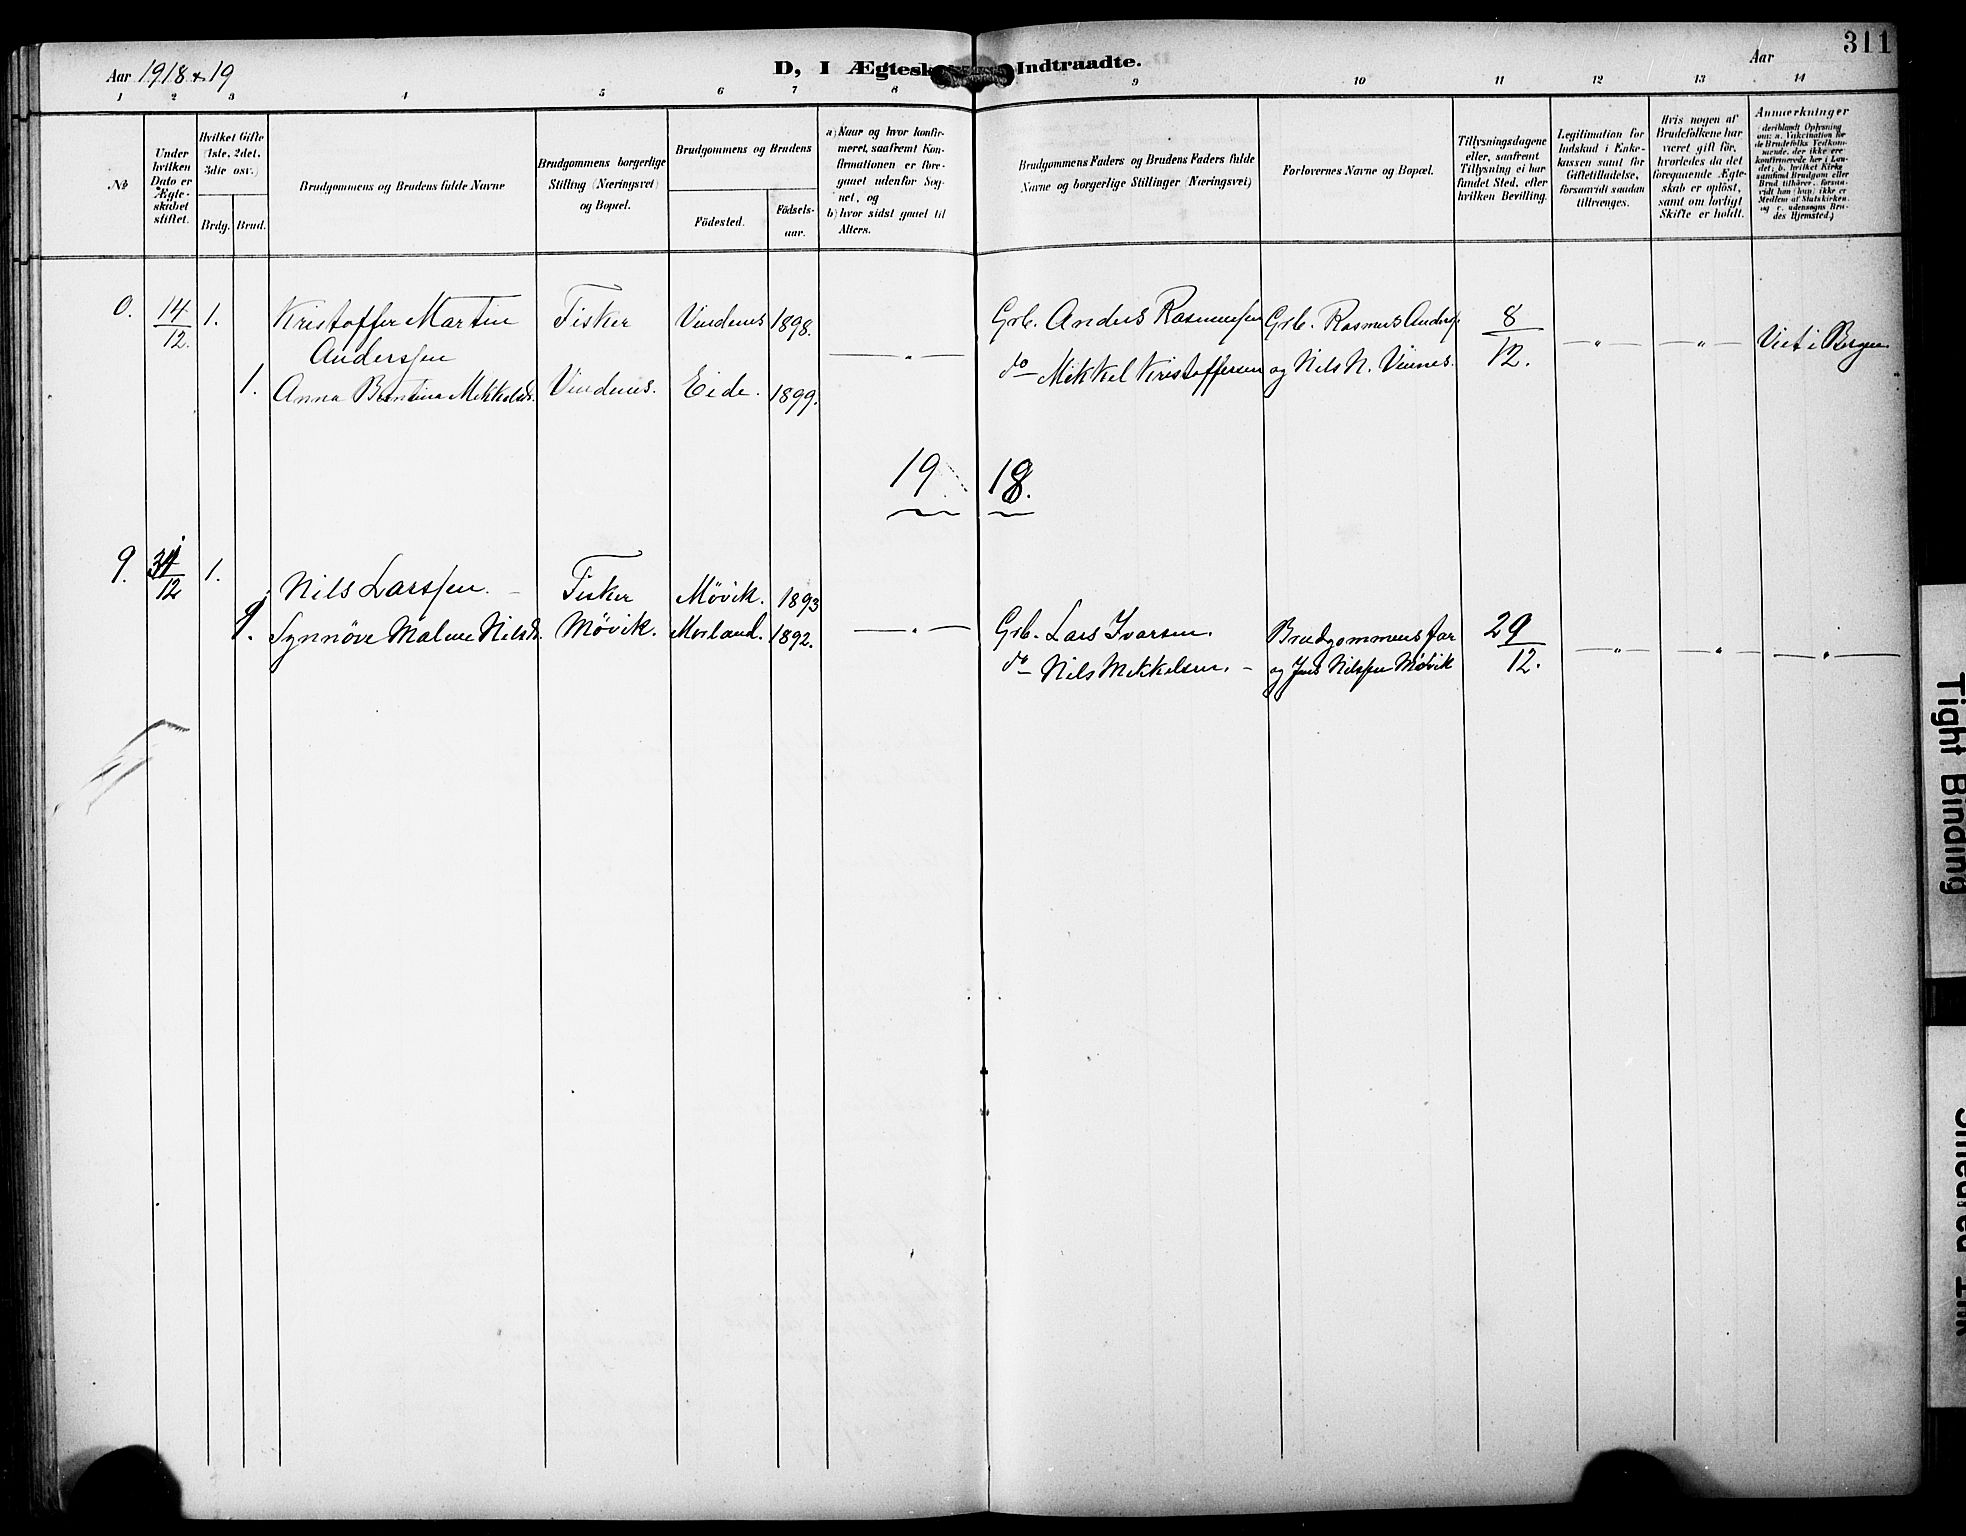 Aar 1918 & 19
D, I Ægtesk Indtraadte.
Aar
311
1 2 3 4 5 6 7 8 9 10 11 12 13 14
No
Under hvilken Dato er Ægteskabet stiftet.
Hvilket Gifte (1ste, 2det, 3die osv.)
Brdg. Brud.
Brudgommens og Brudens fulde Navne
Brudgommens borgerlige Stilling (Næringsvei) og Bopæl.
Brudgommens og Brudens
Födested.
Födselsaar.
a) Naar og hvor konfirmeret, saafremt Konfirmationen er foregaaet udenfor Sognet, og
b) hvor sidst gaaet til Alters.
Brudgommens Faders og Brudens Faders fulde Navne og borgerlige Stillinger (Næringsvei)
Forlovernes Navne og Bopæl.
Tillysningsdagene eller, saafremt Tillysning ei har fundet Sted, efter hvilken Bevilling.
Legitimation for Indskud i Enkekassen samt for Giftetilladelse, forsaavidt saadan tiltrænges.
Hvis nogen af Brudefolkene har været gift för, hvorledes da det foregaaende Ægteskab er oplöst, samt om lovligt Skifte er holdt.
Anmærkninger
(deriblandt Oplysning om: a. Vakcination for de Brudefolks Vedkommende, der ikke ere konfirmerede her i Landet; b. hvilket Kirkesamfund Brudgom eller Brud tilhører, forsaavidt han (hun) ikke er Medlem af Statskirken, og c. udensogns Brudes Hjemsted.)
0. 14/12. 1. Kristoffer Martin Fisker Vindenes 1898. Grb. Anders Rasmussen Grb. Rasmus Anders. 8/12. Viet i Bergen
Anderssen — " — do Mikkel Kristoffersen og Nils N. Vinnes. — " — — " —
1. Anna Bentina Mikkelsd. Vindenes. Eide. 1899.
19 18.
9. 31/12 1. Nils Larssen. Fisker Møvik. 1893
1. Synnöve Malene Nilsd. Møvik. Morland. 1892. — " — Grb. Lars Ivarsen. Brudgommens far 29/12. — " — — " — — " —
do Nils Mikkelsen. og Jens Nilssen Møvik
Tight Binding